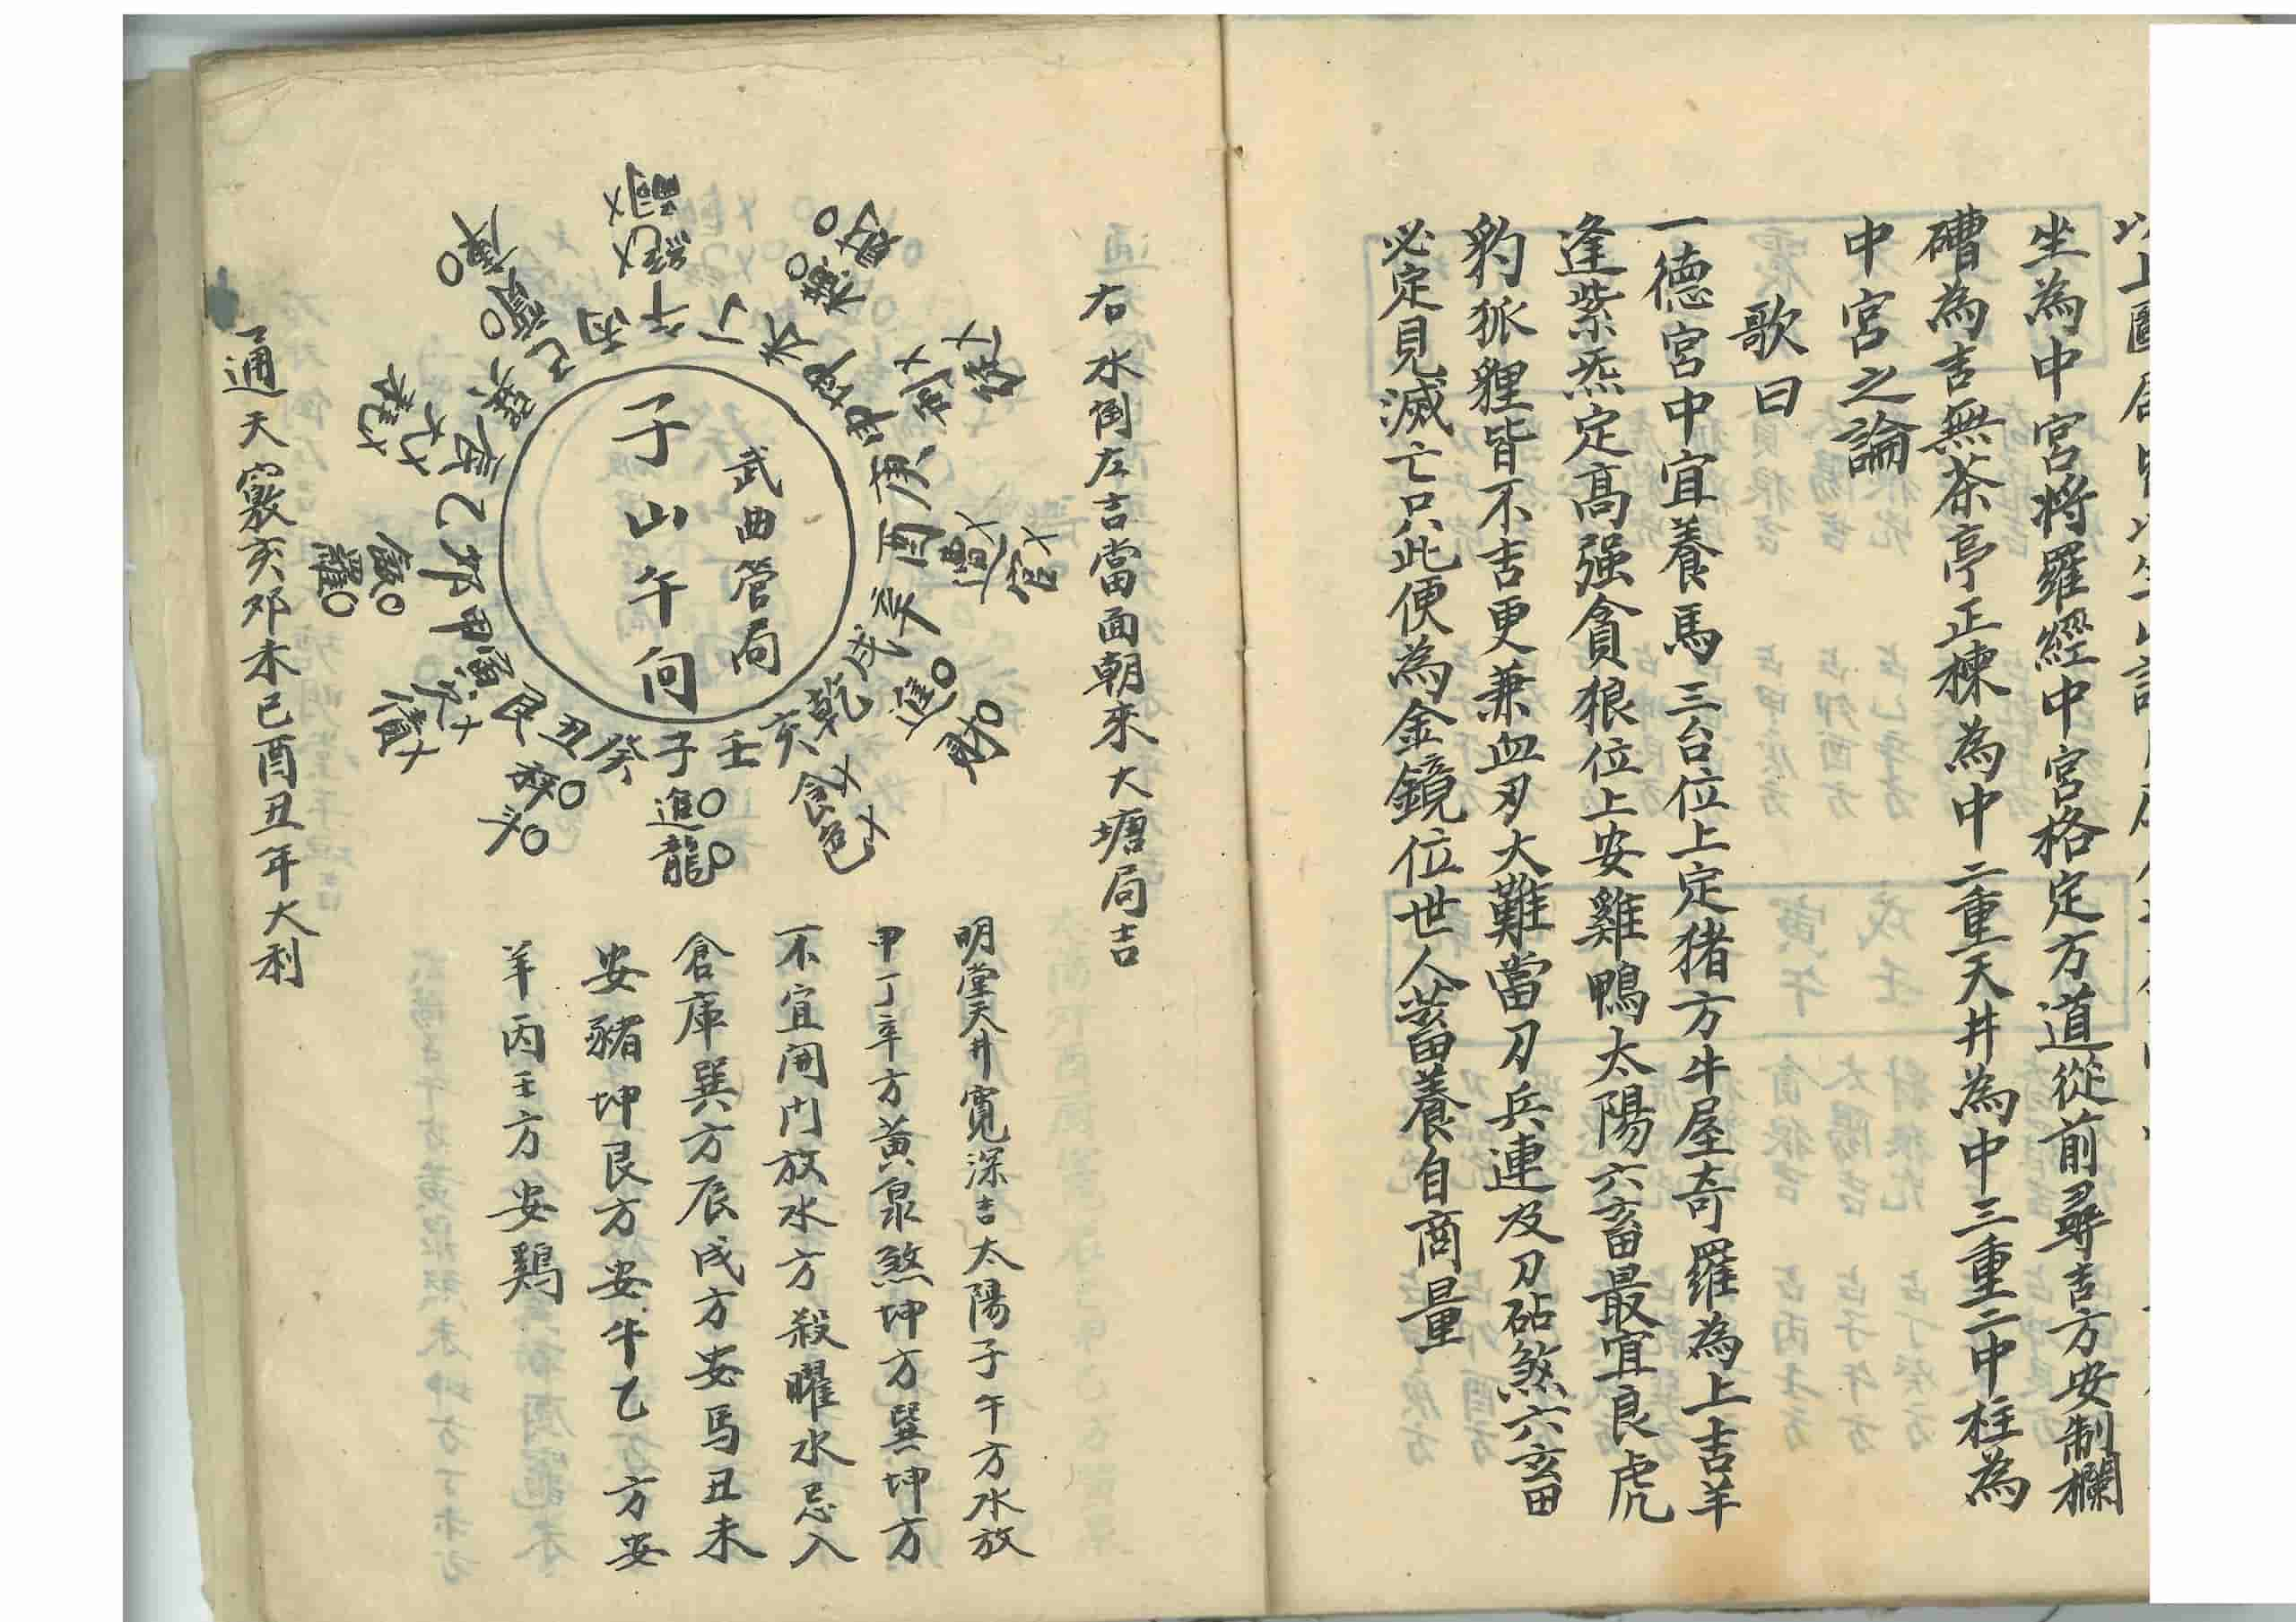 坐為中宮將羅經中宮格定方道從前尋吉方安制欄
磄為吉無茶亭正棟為中二重天井為中三重二中柱為
中宮之論
歌曰
一德宮中宜養馬三台位上定猪方牛屋奇羅為上吉羊
逢紫炁定高强貪狼位上安雞鴨太陽六畜最宜良虎
豹狐狸皆不吉更兼血刃大難當刀兵連及刀砧煞六畜
必定見滅亡只此便為金鏡位世人畜養自商量
右水倒左吉當面朝來大塘局吉
武曲營局
子山午向
午丁未坤申庚酉辛戌乾亥壬子癸丑艮寅甲卯乙辰巽巳丙
進龍
明堂天井寬深吉太陽子午方水放
甲丁辛方黃泉煞坤方巽坤方
不宜開門放水方殺曜水忌入
倉庫巽方辰戌方安馬丑未
安豬坤艮方安牛乙方安
羊丙壬方安鷄
通天竅亥卯未巳酉丑年大利